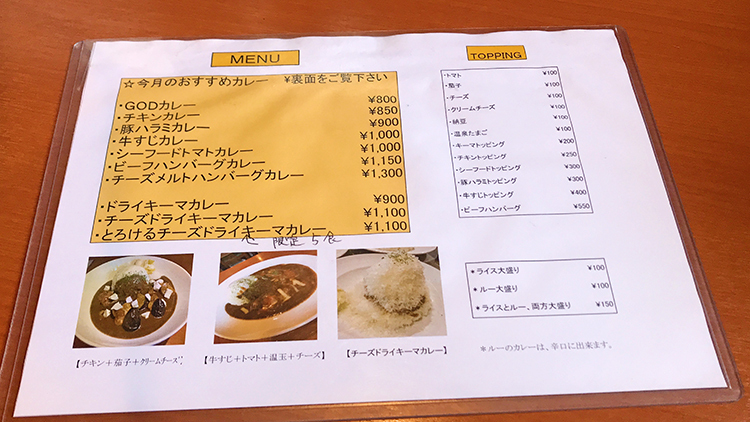 MENU
☆今月のおすすめカレー ¥裏面をご覧下さい
・GODカレー ¥800
・チキンカレー ¥850
・豚ハラミカレー ¥900
・牛すじカレー ¥1,000
・シーフードトマトカレー ¥1,000
・ビーフハンバーグカレー ¥1,150
・チーズメルトハンバーグカレー ¥1,300
・ドライキーマカレー ¥900
・チーズドライキーマカレー ¥1,100
・とろけるチーズドライキーマカレー ¥1,100
限定5食
【チキン+茄子+クリームチーズ】
【牛すじ+トマト+温玉+チーズ】
【チーズドライキーマカレー】
TOPPING
・トマト ¥100
・茄子 ¥100
・チーズ ¥100
・クリームチーズ ¥100
・納豆 ¥100
・温泉たまご ¥100
・キーマトッピング ¥200
・チキントッピング ¥250
・シーフードトッピング ¥300
・豚ハラミトッピング ¥300
・牛すじトッピング ¥400
・ビーフハンバーグ ¥550
*ライス大盛り ¥100
*ルー大盛り ¥100
*ライスとルー、両方大盛り ¥150
*ルーのカレーは、辛口に出来ます。